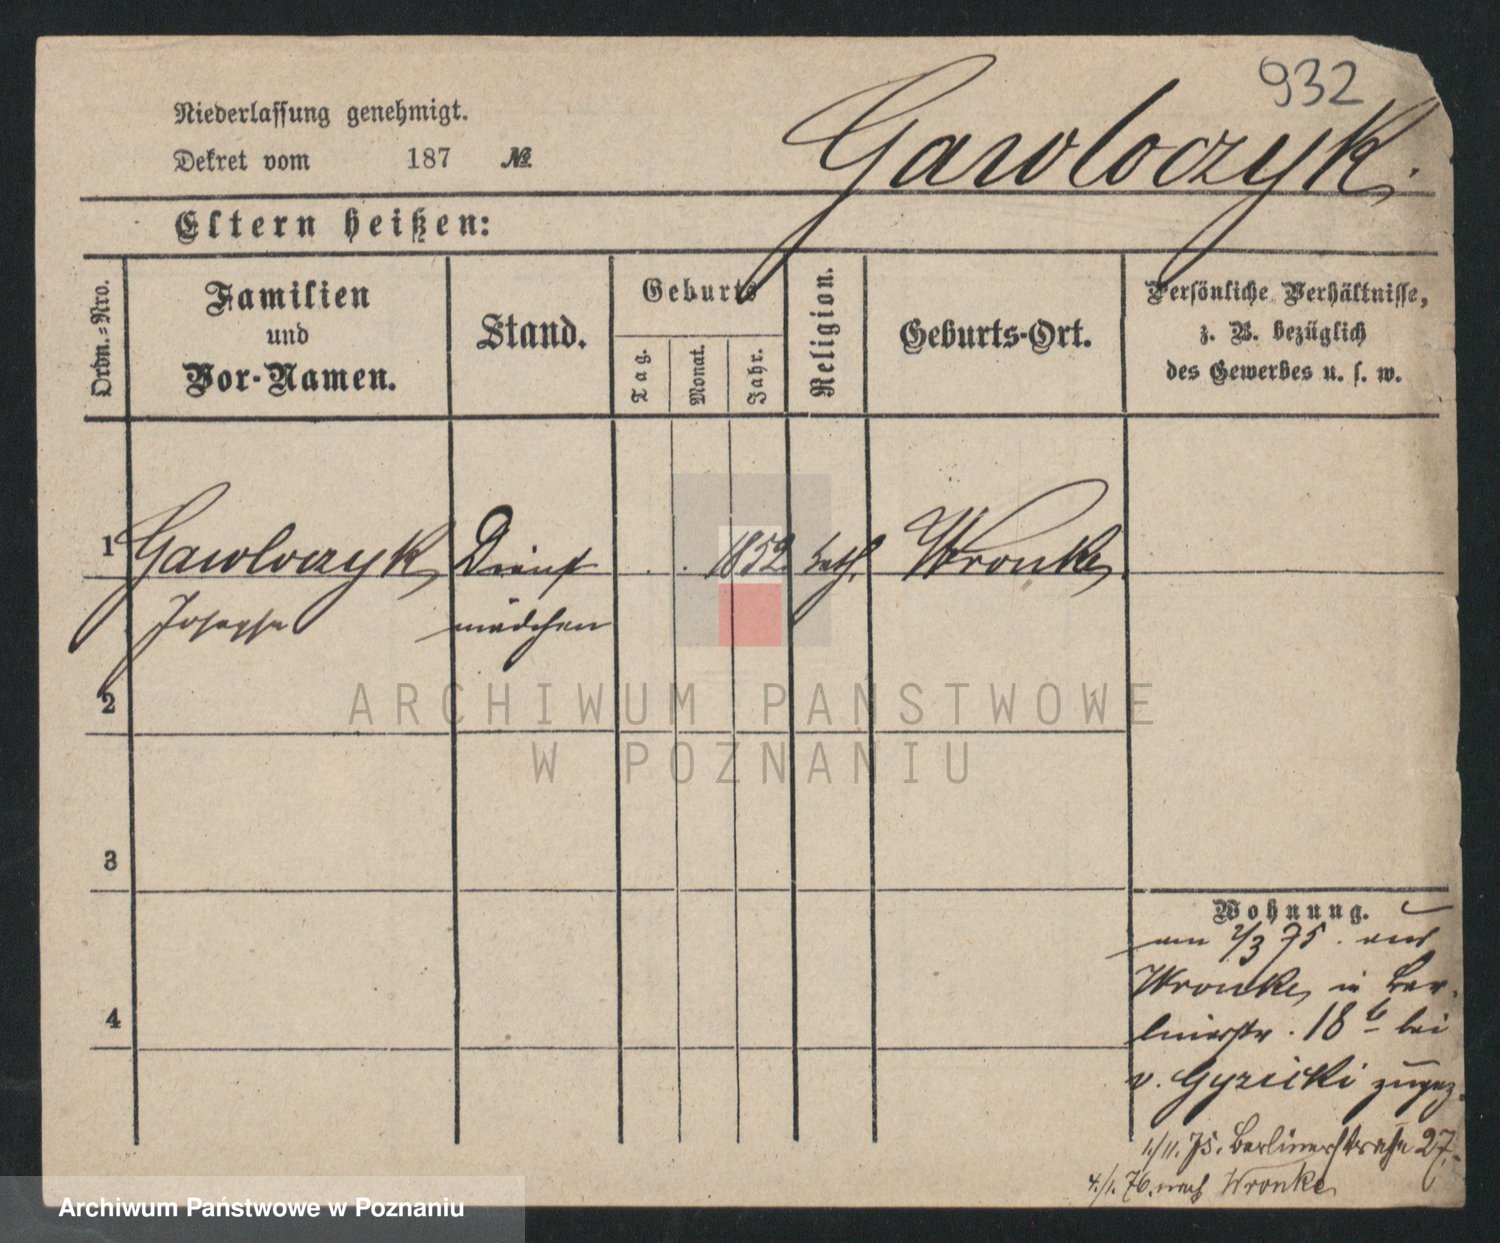 932
Niederlassung genehmigt.
Gawloczyk.
Dekret vom 187 №
Eltern heißen:
Ordn.=Nro.
Familien
und
Vor-Namen.
Stand.
Geburts
Tag.
Monat.
Jahr.
Religion.
Geburts-Ort.
Persönliche Verhältnisse,
z. B. bezüglich
des Gewerbes u. s. w.
1 Gawloczyk Dienst . . 1852 kath. Wronke
Josepha mädchen
2
ARCHIWUM PAŃSTWOWE
W POZNANIU
3
Wohnung.
am 2/3 75. aus
Wronke in Ber-
4
linerstr. 18 b bei
v. Gyzicki zugez.
1./11. 75. Berlinerstraße 27.
4./1. 76. nach Wronke
Archiwum Państwowe w Poznaniu